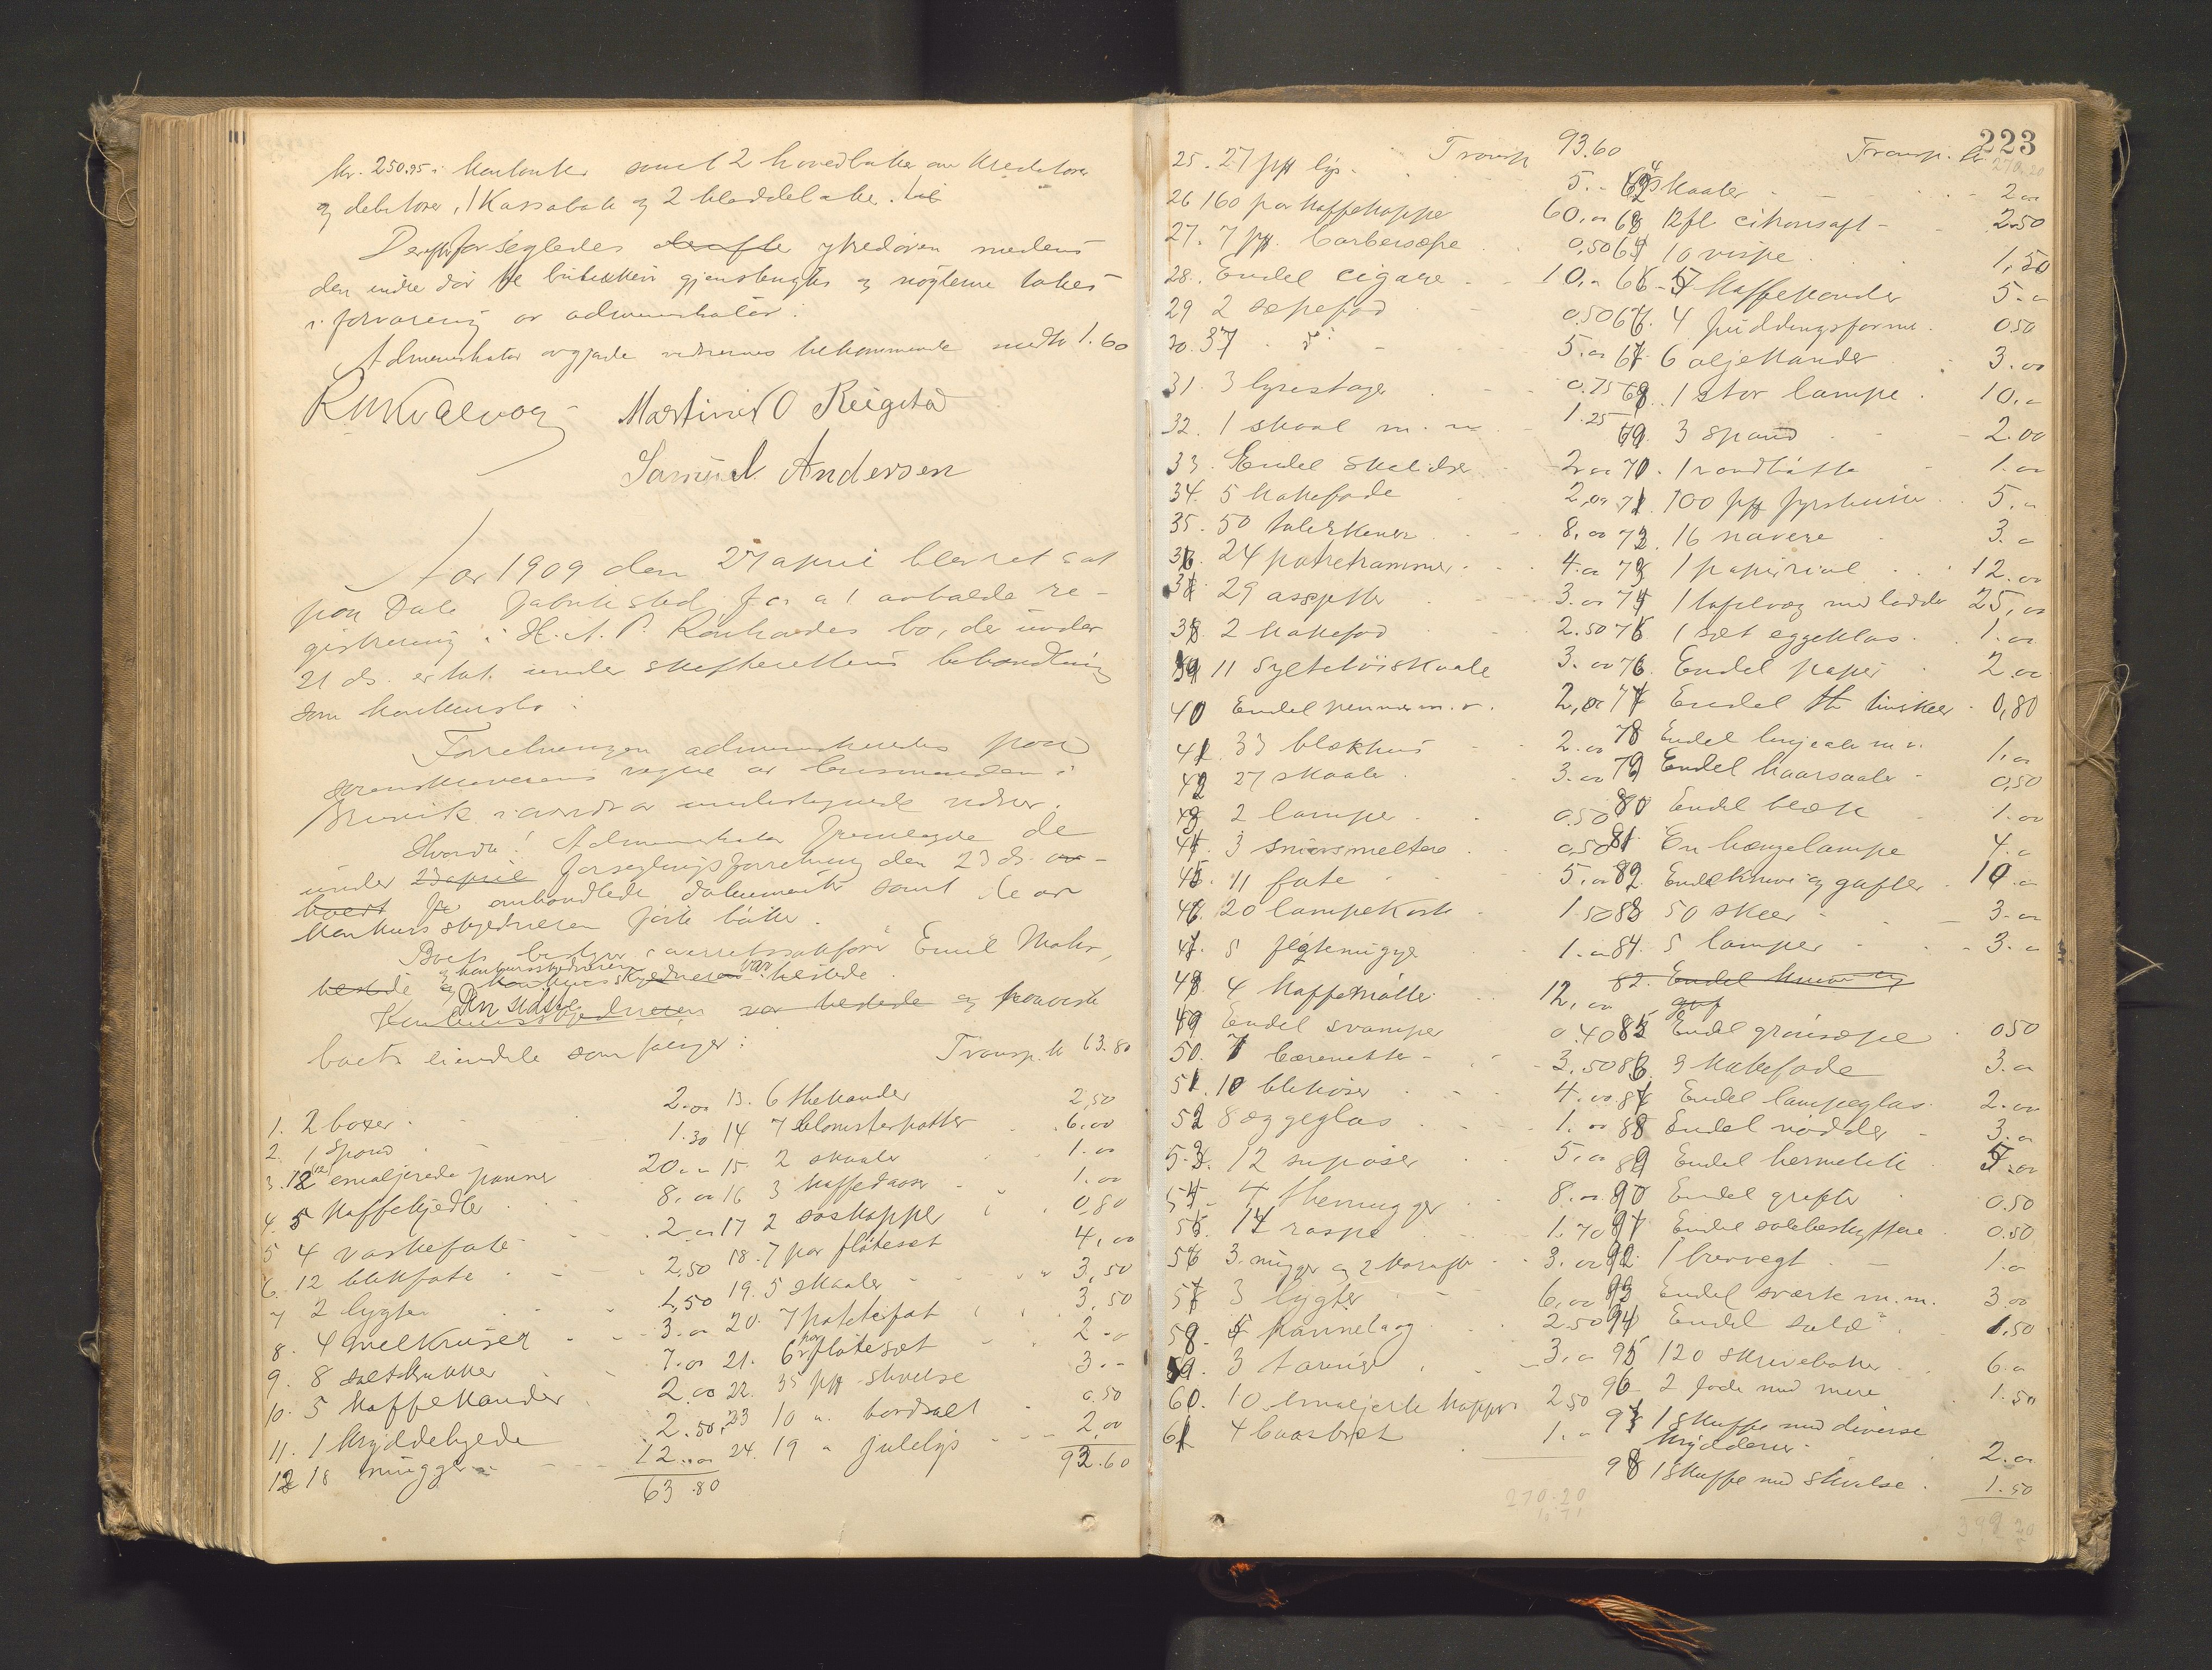 kr. 250.95 i kontanter samt 2 hovedbøker over kreditorer
og debitorer, 1 Kassabok og 2 kladdebøker.
Derefter forsegledes derefter ytredøren medens
den indre dør til butikken gjenstengtes og nøglerne tokes
i forvaring av administrator.
Administrator avgjorde vidnernes tilkommende med kr 1.60
Martinus O Reigstad
Samuel Andersen
Aar 1909 den 27 april blev ret sat
paa Dale fabriksted for at avholde re-
gistrering i H. A. P. bo, der under
21 ds. er tat under skifterettens behandling
som konkursbo.
Forretningen administreredes paa
sorenskriverens vegne av lensmanden i
Bruvik i overvær av undertegnede vidner.
Hvorda! Administrator fremlagde de
under 23 april forseglingsforretning den 23 ds.
omhandlede dokumenter samt de av
konkursskyldneren førte bøker.
Boets bestyrer overretssakfører Emil Mohr,
og konkursskyldneren var tilstede.
Den sidste
Konkursskyldneren var tilstede og paaviste
boets eiendele som følger:
Transp. kr 63.80
1. 2 boxer 2.00
2. 1 spand 1.30
3. 12 emaljerede panner 20.00
4. 5 kaffekjedler 8.00
5 4 vaskefate 2.00
6. 12 blikfate 2.50
7 2 lygter 1,50
8. 4 melkruser 3.00
9. 8 saltkrukker 7.00
10. 5 kaffekander 2.00
11. 1 krydderhylde 2.50
12 18 mugger 12.00
63.80
13. 6 thekander 2,50
14 7 blomsterpotter 6.00
15. 2 skaaler 1.00
16 3 kaffedaaser 1.00
17 2 saskopper 0,80
18. 7 par fløtesæt 4,00
19. 5 skaaler 3,50
20. 7 potetfat 3,50
21. 6 par fløtesæt 2.00
22. 35 pk stivelse 3.-
23 10 " bordsalt 0.50
24. 19 " julelys 2,00
93.60
223
Transp 93.60
25. 27 pk lys 5.-
26 160 par kaffekopper 60.00
27. 7 pk. barbersæpe 0,50
28. Endel cigarer 10.00
29 2 sæpefad 0.50
30. 37 do 5.00
31. 3 lysestager 0.75
32. 1 skaal m.m. 1.25
33. Endel skeidser 2.00
34. 5 kakefade 2,00
35. 50 talerkener 8,00
36. 24 potretrammer 4.00
37. 29 assjetter 3.00
38. 2 kakefad 2.50
39 11 syltetøiskaale 3.00
40 Endel penner m.v. 2,00
41. 33 blækhus 2.00
42 27 skaaler 3.00
43 2 lamper 0.50
44. 3 smørsmeltere 0.50
45. 11 fate 5.00
46. 20 lampekoste 1.50
47. 5 fløtemugge 1.00
48 4 kaffemøller 12.00
49 Endel svamper 0.40
50. 7 bærenetter 3.50
51. 10 blikøser 4.00
52 8 æggeglas 1.00
53. 12 supøser 5.00
54 4 themugger 8.00
55. 14 raspe 1.70
56 3 mugger og 2 karafler 3.00
57 3 lygter 6.00
58. 5 kannelaag 2.50
59. 3 tariner 3.00
60. 10 emaljerte kopper 2.50
61 4 baarbret 1.00
270.20
Transp. kr 270.20
62 4 skaaler 2.00
63 12 fl citronsaft 2.50
64 10 vispe 1,50
65 5 kaffekander 5.00
66. 4 puddingsformer 0.50
67. 6 oljekander 3.00
68. 1 stor lampe 10.00
69. 3 spand 2.00
70. 1 vandbøtte 1.00
71. 100 pk fyrstikker 5.00
72. 16 navere 3.00
73 1 papirrival 12.00
74 1 tafelvæg med lodder 25,00
75 1 sæt eggeklas 1.00
76. Endel papir 2.00
77 Endel theskeer 0,80
78 Endel linjealer m.v. 1.00
79 Endel haarsaaler 0,50
80 Endel blæk 1.00
81. En hængelampe 4.00
82. Endel knive og gafler 10.00
83 50 skeer 3.00
84. 5 lamper 3.00
82. Endel knive og
gaf
85 Endel grønsæpe 0.50
86. 9 kakefade 3.00
87 Endel lampeglas 2.00
88 Endel nødder 3.00
89 Endel hermetik 5.00
90 Endel grøfter 0.50
91 Endel solbeskyttere 0.50
92. 1 brevvegt 1.00
93 Endel sværte m.m. 3.00
94 Endel sald 1.50
95 120 skrivebøker 6.00
96 2 fade med mere 1.50
97 1 skuffe med diverse
krydderier 2.00
98 1 skuffe med stivelse 1.50
399.20